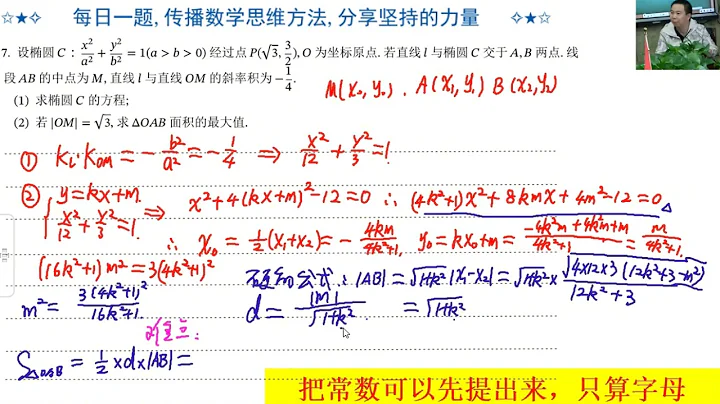 ☆★✧ 每日一题, 传播数学思维方法, 分享坚持的力量 ✧★☆
7. 设椭圆 C : x²/a² + y²/b² = 1(a > b > 0) 经过点 P(√3, 3/2), O 为坐标原点. 若直线 l 与椭圆 C 交于 A, B 两点. 线
段 AB 的中点为 M, 直线 l 与直线 OM 的斜率积为 −1/4.
M(x₀, y₀) . A(x₁, y₁) B(x₂, y₂)
(1) 求椭圆 C 的方程;
(2) 若 |OM| = √3, 求 ΔOAB 面积的最大值.
① K_l·K_OM = −b²/a² = −1/4 ⇒ x²/12 + y²/3 = 1
② { y=kx+m, x²/12 + y²/3 = 1 ⇒ x²+4(kx+m)²−12=0 ∴ (4k²+1)x²+8kmx+4m²−12=0
∴ x₀ = 1/2(x₁+x₂) = −4km/(4k²+1), y₀=kx₀+m = (−4k²m+4k²m+m)/(4k²+1) = m/(4k²+1)
(16k²+1)m² = 3(4k²+1)²
公式: |AB| = √(1+k²) |x₁−x₂| = √(1+k²) × √(4×12×3(12k²+3−m²))/(12k²+3)
m² = 3(4k²+1)²/(16k²+1)
d = |m|/√(1+k²) = √(1+k²)
S△OAB = 1/2×d×|AB| =
把常数可以先提出来，只算字母